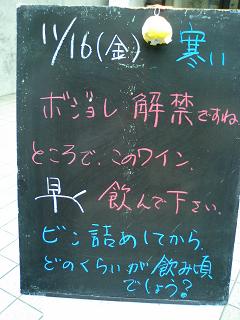 11/16(金) 寒い
ボジョレ 解禁ですね
ところで、このワイン、
早く 飲んで下さい。
ビン詰めしてから、
どのくらいが飲み頃
でしょう?